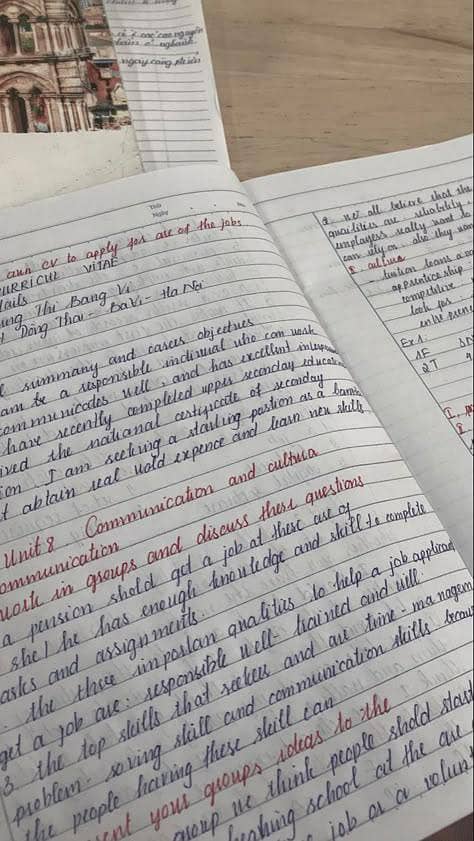 ngay càng phát triển
Thứ
Ngày
No
anh CV to apply for are of the jobs
CURRICUL VITAE
tails
ung Thi Bang Vi
Dông Thai - Ba Vi - Ha Noi
summany and casees objectues
am be a responsible indiviual who can work
communicates well, and has excellent
have recently completed upper seconday education
ived the national certificate of seconday
ion I am seeking a starting postion as a
t abtain real wold expence and learn new skills
Unit 8 Communication and cultura
ommunication
work in groups and discuss these questions
a pension shold get a job at these are of
she / he has enough knowledge and skill to complete
asks and assignments.
the three importan qualities to help a job applicant
get a job are: responsible well-trained and will.
3 the top skills that seekers and are time-managem
problem-soving skill and communication skills becaus
the people having these skill can
ent your groups ideas to the
group we think people shold start
school at the are
job or a volunt
2 we all believe that the
quailities are reliability
employers really want to
can rely on. also they wan
2 cultura
- tuition loans a
apprenticeship
competitive
look for
Ex1:
1E
2T